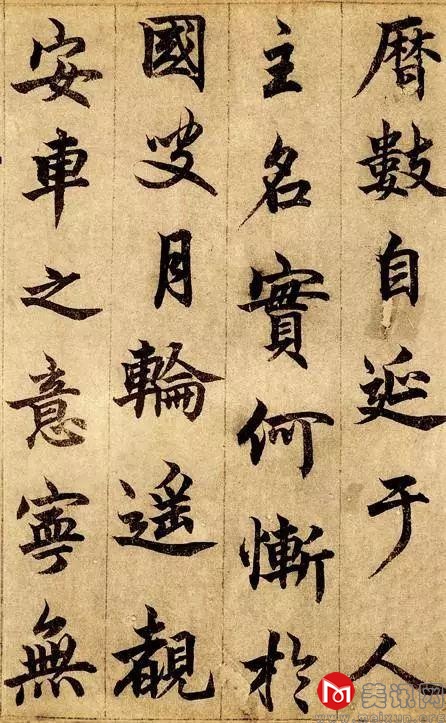 曆數自延于人
主名實何慚於
國叟月輪遙覩
安車之意寧無
美讯网